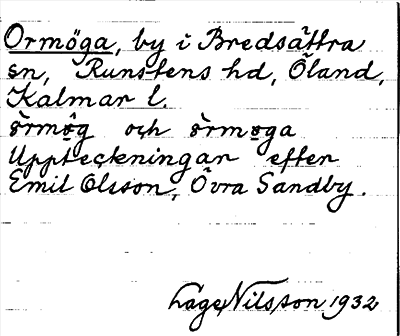 Ormöga, by i Bredsättra
sn, Runstens hd, Öland,
Kalmar l.
òrmö̀g och òrmøga
Uppteckningar efter
Emil Olsson, Övra Sandby.
Lage Nilsson 1932